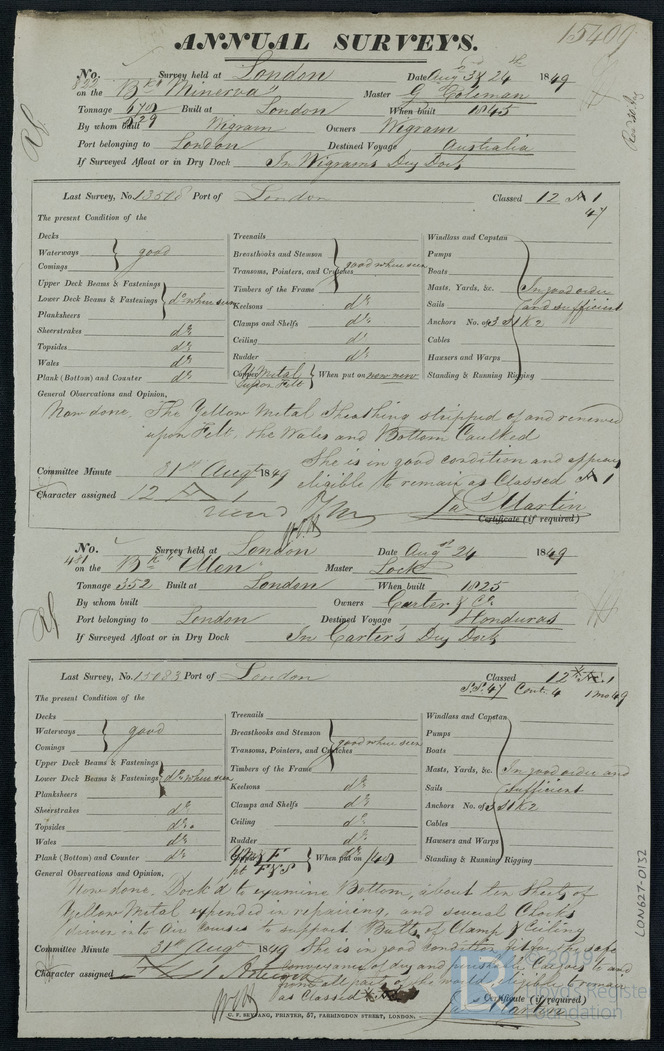 15409
ANNUAL SURVEYS.
No. Survey held at London Date Aug 3 & 24th 1849
on the Bk "Minerva" Master G Coleman
Tonnage 670 829 Built at London When built 1845
By whom built Wigram Owners Wigram
Port belonging to London Destined Voyage Australia
If Surveyed Afloat or in Dry Dock In Wigrams Dry Dock
Last Survey, No. 13508 Port of London Classed 12 A 1
47
The present Condition of the
Decks
Waterways good
Comings
Upper Deck Beams & Fastenings
Lower Deck Beams & Fastenings do where seen
Planksheers
Sheerstrakes do
Topsides do
Wales do
Plank (Bottom) and Counter do
Treenails
Breasthooks and Stemson
Transoms, Pointers, and Crutches good where seen
Timbers of the Frame
Keelsons do
Clamps and Shelfs do
Ceiling do
Rudder do
Copper Y Metal upon Felt When put on now new
Windlass and Capstan
Pumps
Boats
Masts, Yards, &c. In good order
Sails and sufficient
Anchors No. of 3 S 1 K 2
Cables
Hawsers and Warps
Standing & Running Rigging
General Observations and Opinion,
Now done, The Yellow Metal Sheathing stripped of and renewed
upon Felt, the Wales and Bottom Caulked
She is in good condition and appears
Committee Minute 31st Augt 1849 eligible to remain as Classed A 1
Character assigned 12 A 1 Jas Martin
Certificate (if required)
No. 481 Survey held at London Date Augst 24 1849
on the Bk "Ellen" Master Lock
Tonnage 352 Built at London When built 1825
By whom built Owners Carter & Co.
Port belonging to London Destined Voyage Honduras
If Surveyed Afloat or in Dry Dock In Carter's Dry Dock
Last Survey, No. 15083 Port of London Classed 12 * Æ 1
S.S. 47 Cont. 4 1 mo 49
The present Condition of the
Decks
Waterways good
Comings
Upper Deck Beams & Fastenings
Lower Deck Beams & Fastenings do where seen
Planksheers
Sheerstrakes do
Topsides do.
Wales do
Plank (Bottom) and Counter do
Treenails
Breasthooks and Stemson
Transoms, Pointers, and Crutches good where seen
Timbers of the Frame
Keelsons do
Clamps and Shelfs do
Ceiling do
Rudder do
When put on /48
Windlass and Capstan
Pumps
Boats
Masts, Yards, &c. In good order and
Sails sufficient
Anchors No. of 3 S 1 K 2
Cables
Hawsers and Warps
Standing & Running Rigging
General Observations and Opinion,
Now done, Dock'd to examine Bottom, about ten Sheets of
Yellow Metal expended in repairing, and several Chocks
driven into Air Courses to support Butts of Clamp & Ceiling
Committee Minute 31st Augt 1849 She is in good condition fit for the safe
conveyance of dry and perishable Cargoes to and
Character assigned Æ 1 from all parts of the world & eligible to remain
as Classed * Æ
Certificate (if required)
Jas Martin
G. F. SEYFANG, PRINTER, 57, FARRINGDON STREET, LONDON.
LON627-0132
© 2019
Lloyd's Register
Foundation